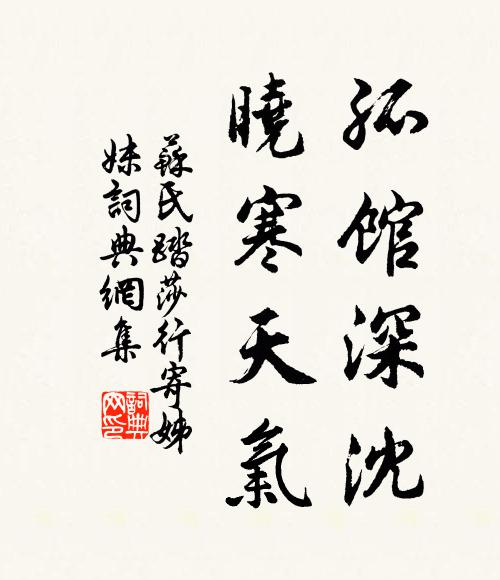 孤馆深沈
曉寒天氣
蘇氏踏莎行寄姊
妹詞典網集
詞典网印